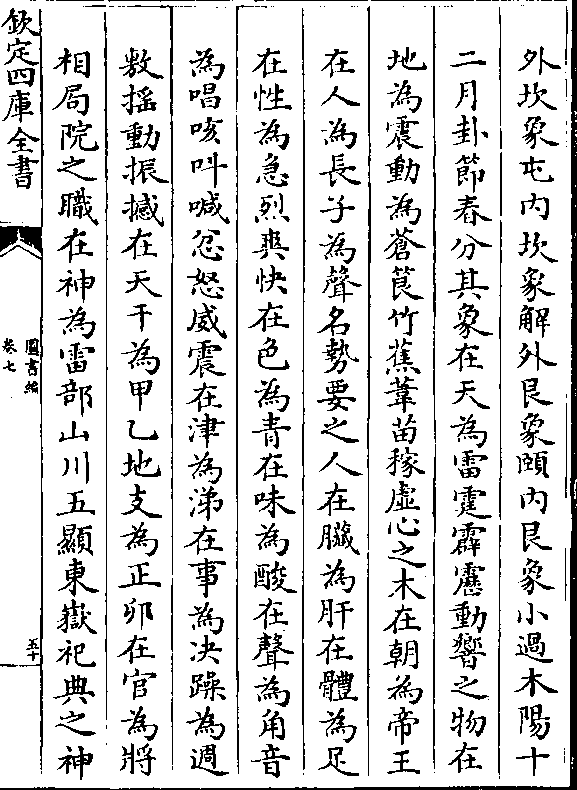 外坎象屯内坎象解外艮象頤内艮象小過木陽十
二月卦節春分其象在天為雷霆霹靂動響之物在
地為震動為蒼筤竹蕉葦苗稼虛心之木在朝為帝王
在人為長子為聲名勢要之人在臟為肝在體為足
在性為急烈爽快在色為青在味為酸在聲為角音
為唱咳叫喊忿怒威震在津為涕在事為决躁為週
敷搖動振撼在天干為甲乙地支為正卯在官為將
相局院之職在神為雷部山川五顯東嶽祀典之神
欽定四庫全書
圖書編
卷七
五十